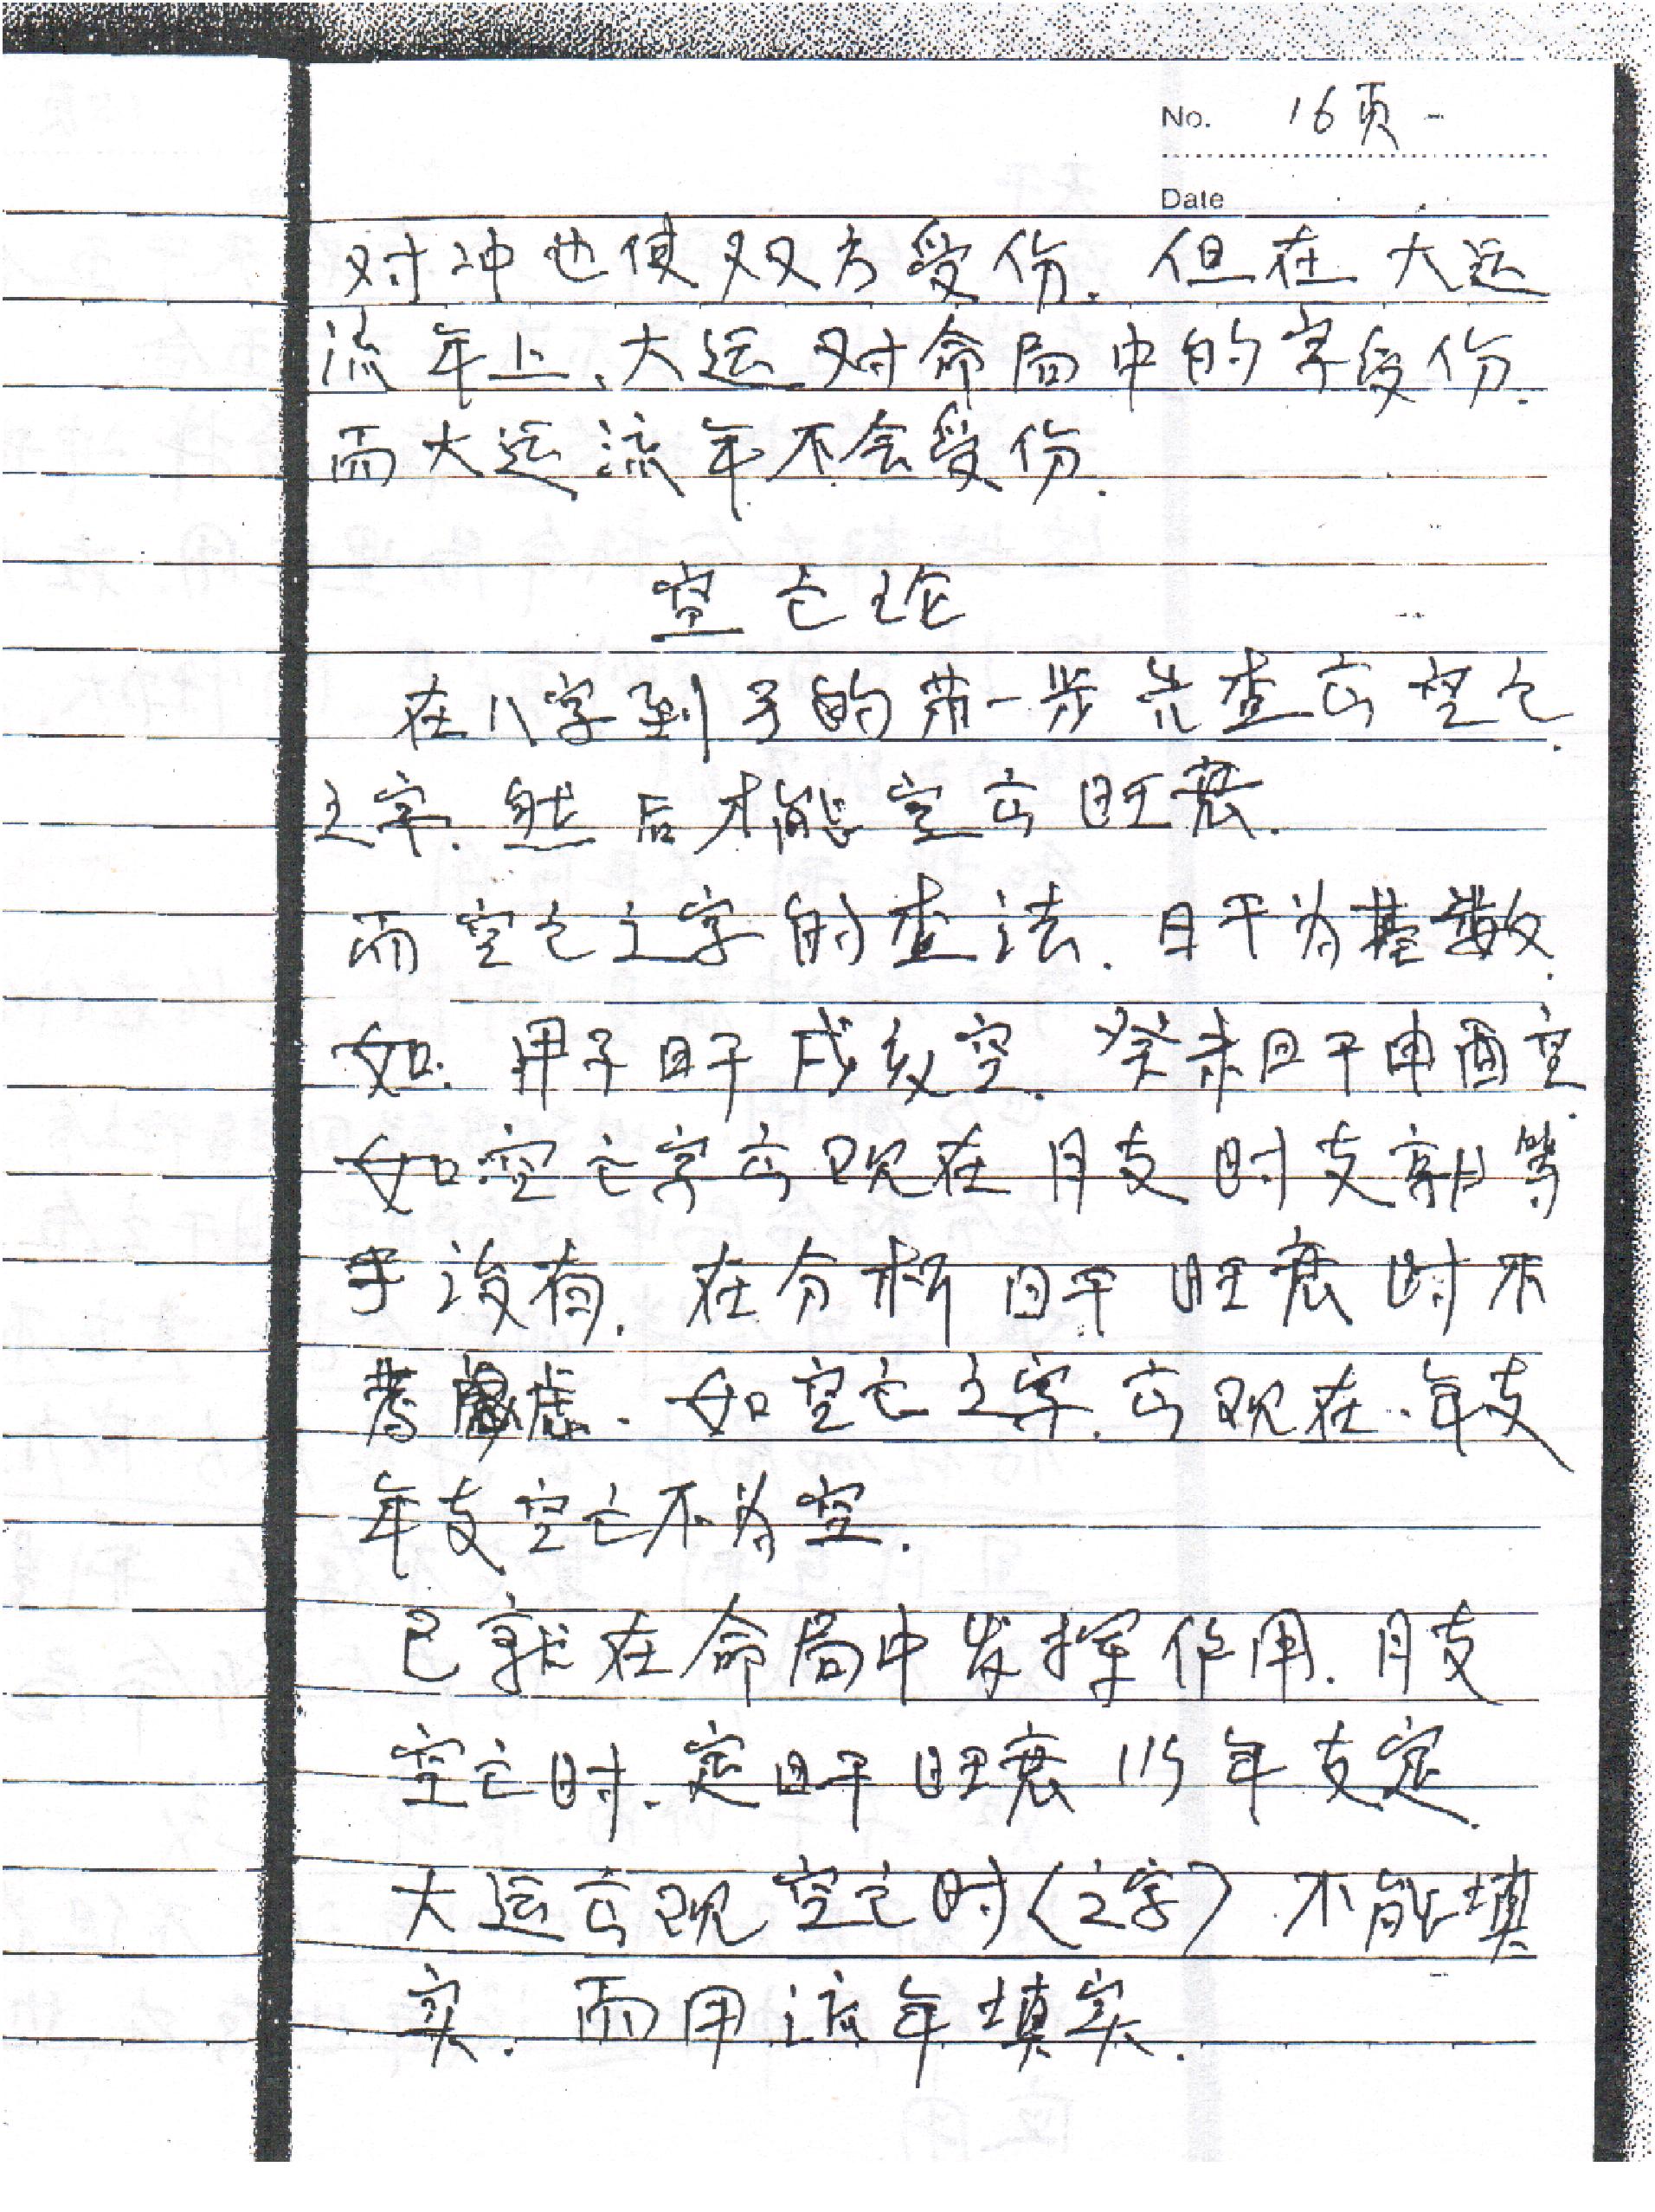 No. 16页
Date
对冲也使双方受伤.但在大运
流年上、大运对命局中的字受伤.
而大运流年不会受伤.
空亡论
在八字到手的第一步先查出空亡.
之字.然后才能定出旺衰.
而空亡之字的查法.日干为基数.
如.甲子日干戌亥空.癸未日干申酉空.
如空亡字出现在月支时支就等
于没有.在分析日干旺衰时不
考虑.如空亡之字.出现在.年支
年支空亡不为空.
它就在命局中发挥作用.月支
空亡时.定日干旺衰以年支定.
大运出现空亡时(之字)不能填
实.而用流年填实.